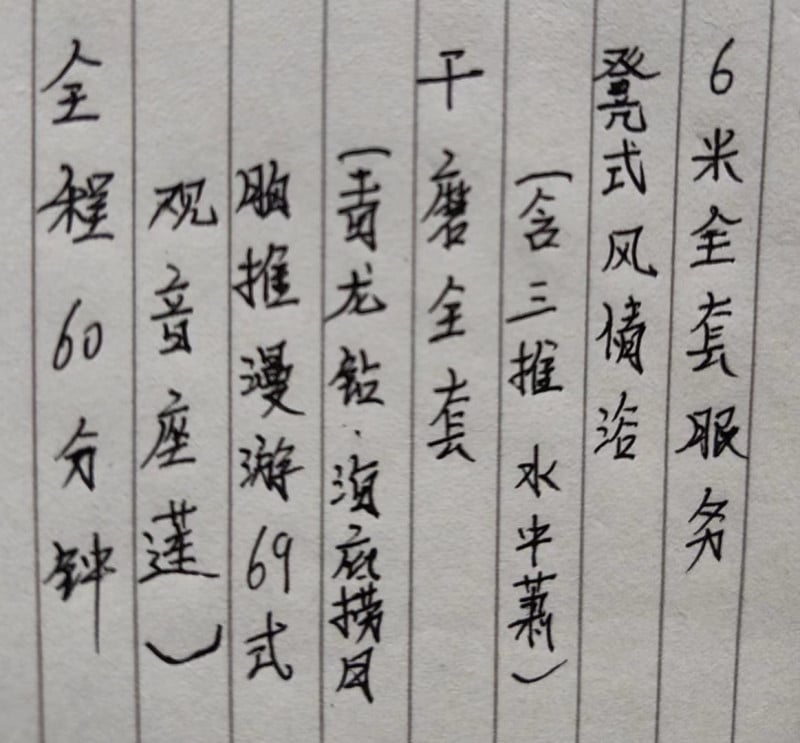 6米全套服务
凳式风情浴
(含三推 水中萧)
干磨全套
(青龙钻·海底捞月
胸推漫游69式
观音座莲)
全程60分钟